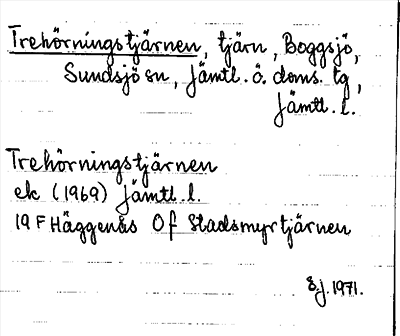 Trehörningstjärnen, tjärn, Boggsjö,
Sundsjö sn, Jämtl. ö. doms. tg,
Jämtl. l.
Trehörningstjärnen
ek (1969) Jämtl. l.
19 F Häggenås Of Stadsmyrtjärnen
S.J. 1971.